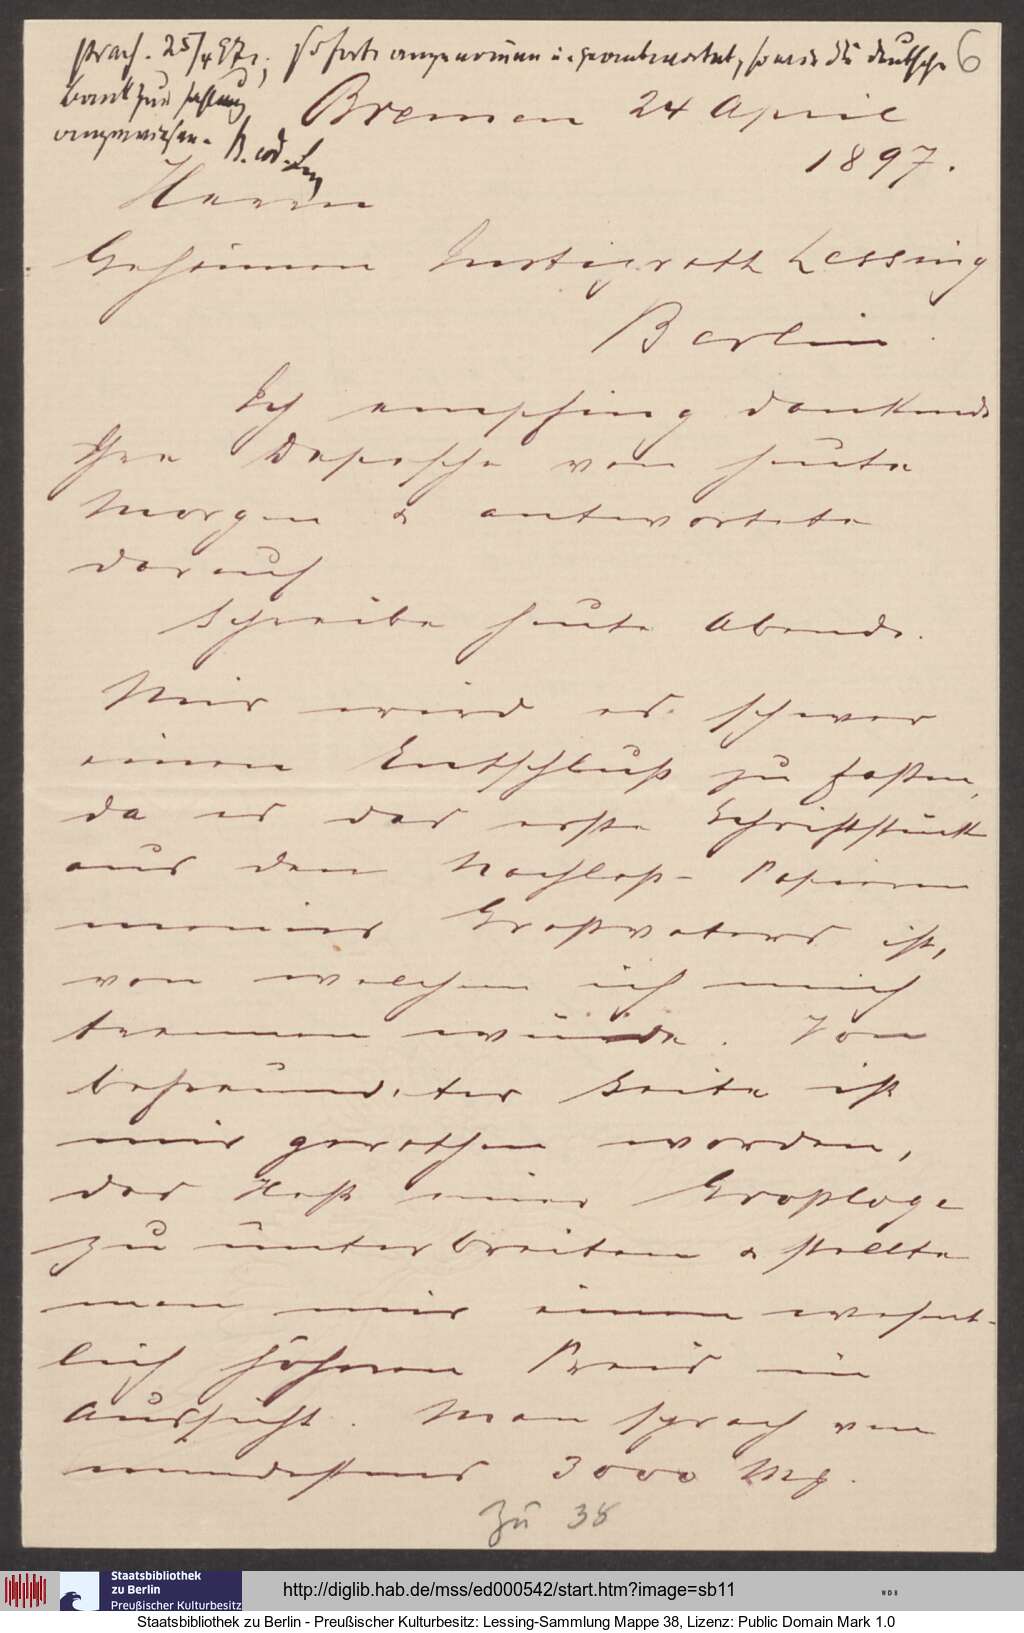 praes. 25/4 97, sofort angenommen u. geantwortet, sowie die deutsche
bank zur Zahlung
angewiesen.
6
Bremen 24 April
1897.
Herrn
Geheimen Justizrath Lessing
Berlin.
Ich empfing dankend
Ihre Depesche von heute
Morgen & antwortete
darauf
Schreibe heute Abend.
Mir wird es schwer
einen Entschluß zu faßen,
da es das erste Schriftstück
aus den Nachlaß-Papieren
meines Großvaters ist,
von welchem ich mich
trennen würde. Von
befreundeter Seite ist
mir gerathen worden,
das Heft einer Großloge
zu unterbreiten & stellte
man mir einen wesent-
lich höheren Preis in
Aussicht. Man sprach von
mindestens 3000 Mk.
Zu 38
Staatsbibliothek
zu Berlin
Preußischer Kulturbesitz
http://diglib.hab.de/mss/ed000542/start.htm?image=sb11
WDB
Staatsbibliothek zu Berlin - Preußischer Kulturbesitz: Lessing-Sammlung Mappe 38, Lizenz: Public Domain Mark 1.0